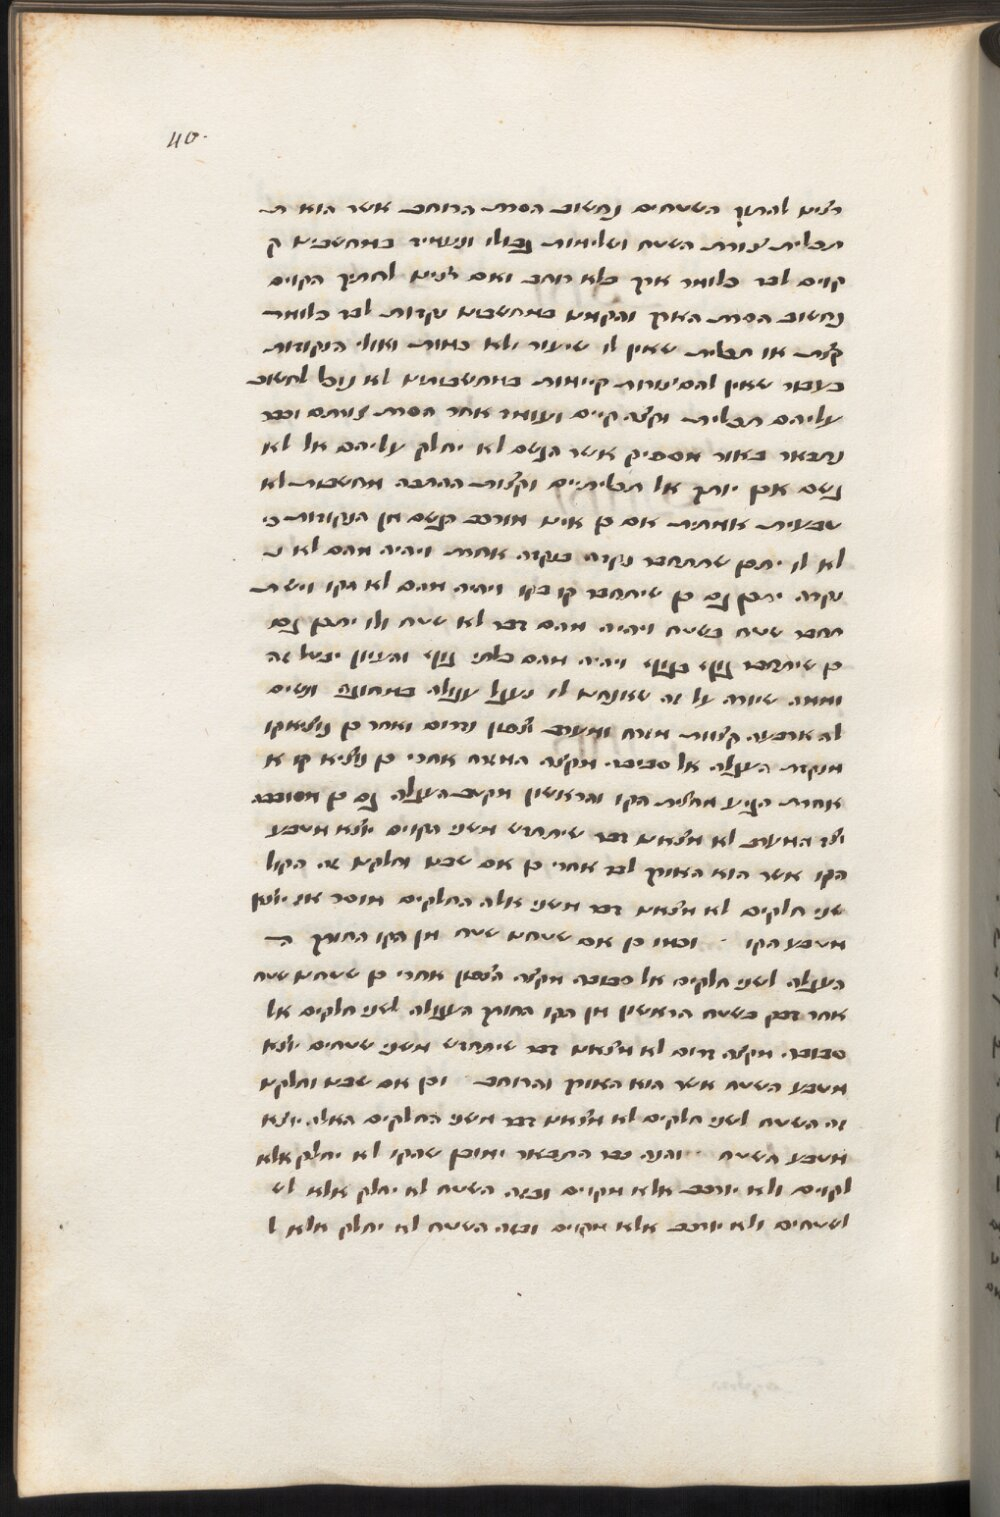 40.
רצינו לחתוך השטחים נחשוב הסרת הרוחב אשר הוא ת
תכלית צורת השטח ושלימות גבולו ונעמיד במחשבתינו ק
קוים לבד כלומר אורך בלא רוחב ואם רצינו לחתוך הקוים
נחשוב הסרת האורך והקמנו במחשבתינו נקדות לבד כלומר
קצת או תכלית שאין לו שיעור ולא כמות ואולי הנקודות
בעבור שאין להם צורות קיימות במחשבותינו לא נוכל לחשוב
עליהם תכלית וקצה קיים ועומד אחר הסרת צורתם וכבר
נתבאר באור מספיק אשר הגשם לא יחלק עליהם אל לא
גשם אכן יותך אל תכליתיים וקצות ההרכבה מחשבות לא
טבעית אמתית אם כן אינו מורכב הגשם מן הנקודות כי
לא לו יתכן שתתחבר נקדה בנקדה אחת ויהיה מהם לא נ
נקדה יתכן גם כן שיתחבר קו בקו ויהיה מהם לא הקו וישת
תחבר שטח בשטח ויהיה מהם דבר לא שטח ולו יתכן גם
כן שיתחבר גוף בגוף ויהיה מהם בלתי גוף והעיון יבטל זה
וממה שיורה על זה שאנחנו לו נעגל עגולה במחוגה ונשים
לה ארבעה קצוות מזרח ומערב צפון ודרום ואחר כן נוציא קו
מנקדת העגלה אל סביבה מקצה המזרח אחרי כן נוציא קו א
אחרת הגיע תחלית הקו והראשון מקטב העגלה גם כן מסובבה
וצד המערב לא מצאנו דבר שיתחדש משני הקוים יוצא מטבע
הקו אשר הוא האורך לבד אחרי כן אם שבנו וחלקנו זה הקול
שני חלקים לא מצאנו דבר משני אלה החלקים מוסר או יוצאן
מטבע הקו וכמו כן אם שטחנו שטח מן הקו החותך ה
העגלה לשני חלקים אל סבובה מקצה הצפון אחרי כן שטחנו שטח
אחר דבק בשטח הראשון מן הקו החותך העגולה לשני חלקים אל
סבובה מקצה דרום לא מצאנו דבר שיתחדש משני שטחים יוצא
מטבע השטח אשר הוא האורך והרוחב וכן אם שבנו וחלקנו
זה השטח לשני חלקים לא מצאנו דבר משני החלקים האלה יוצא
מטבע השטח והנה כבר התבאר ויתכן שהקו לא יחלק אלא
לקוים ולא יורכב אלא מקוים ובזה השטח לא יחלק אלא לש
לשטחים ולא יורכב אלא מקוים ובזה השטח לא יחלק אלא ל